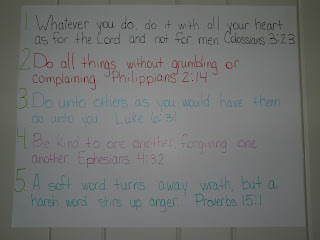 1. Whatever you do, do it with all your heart
as for the Lord and not for men. Colossians 3:23
2. Do all things without grumbling or
complaining. Philippians 2:14
3. Do unto others as you would have them
do unto you. Luke 6:31
4. Be kind to one another, forgiving one
another. Ephesians 4:32
5. A soft word turns away wrath, but a
harsh word stirs up anger. Proverbs 15:1